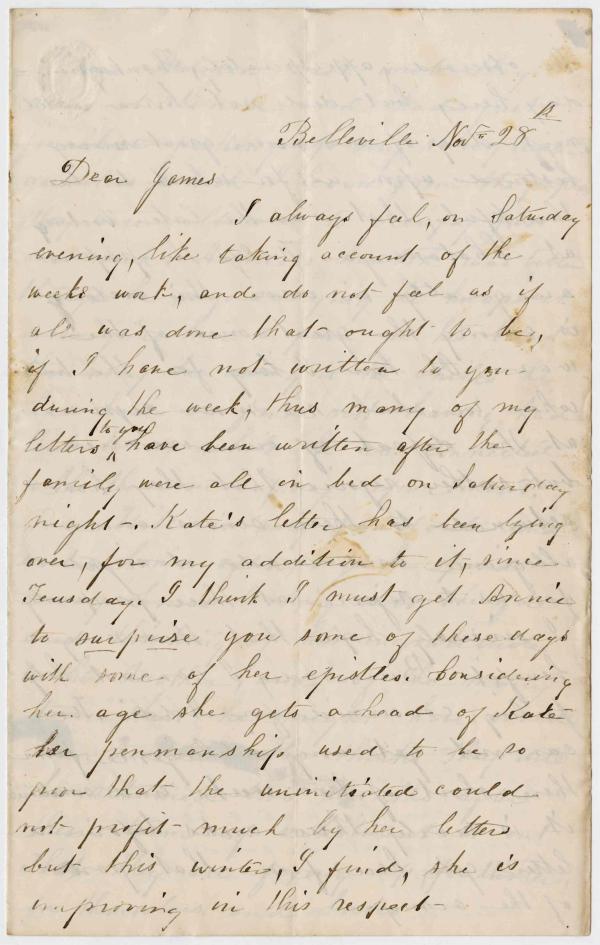 Belleville Novr 28th
Dear James
I always feel, on Saturday
evening, like taking account of the
weeks work, and do not feel as if
all was done that ought to be,
if I have not written to you
during the week, thus many of my
letters to you have been written after the
family were all in bed on Saturday
night. Kate's letter has been lying
over, for my addition to it, since
Teusday. I think I must get Annie
to surprize you some of these days
with some of her epistles. Considering
her age she gets a head of Kate
her penmanship used to be so
poor that the uninitiated could
not profit much by her letters
but this winter, I find, she is
improving in this respect